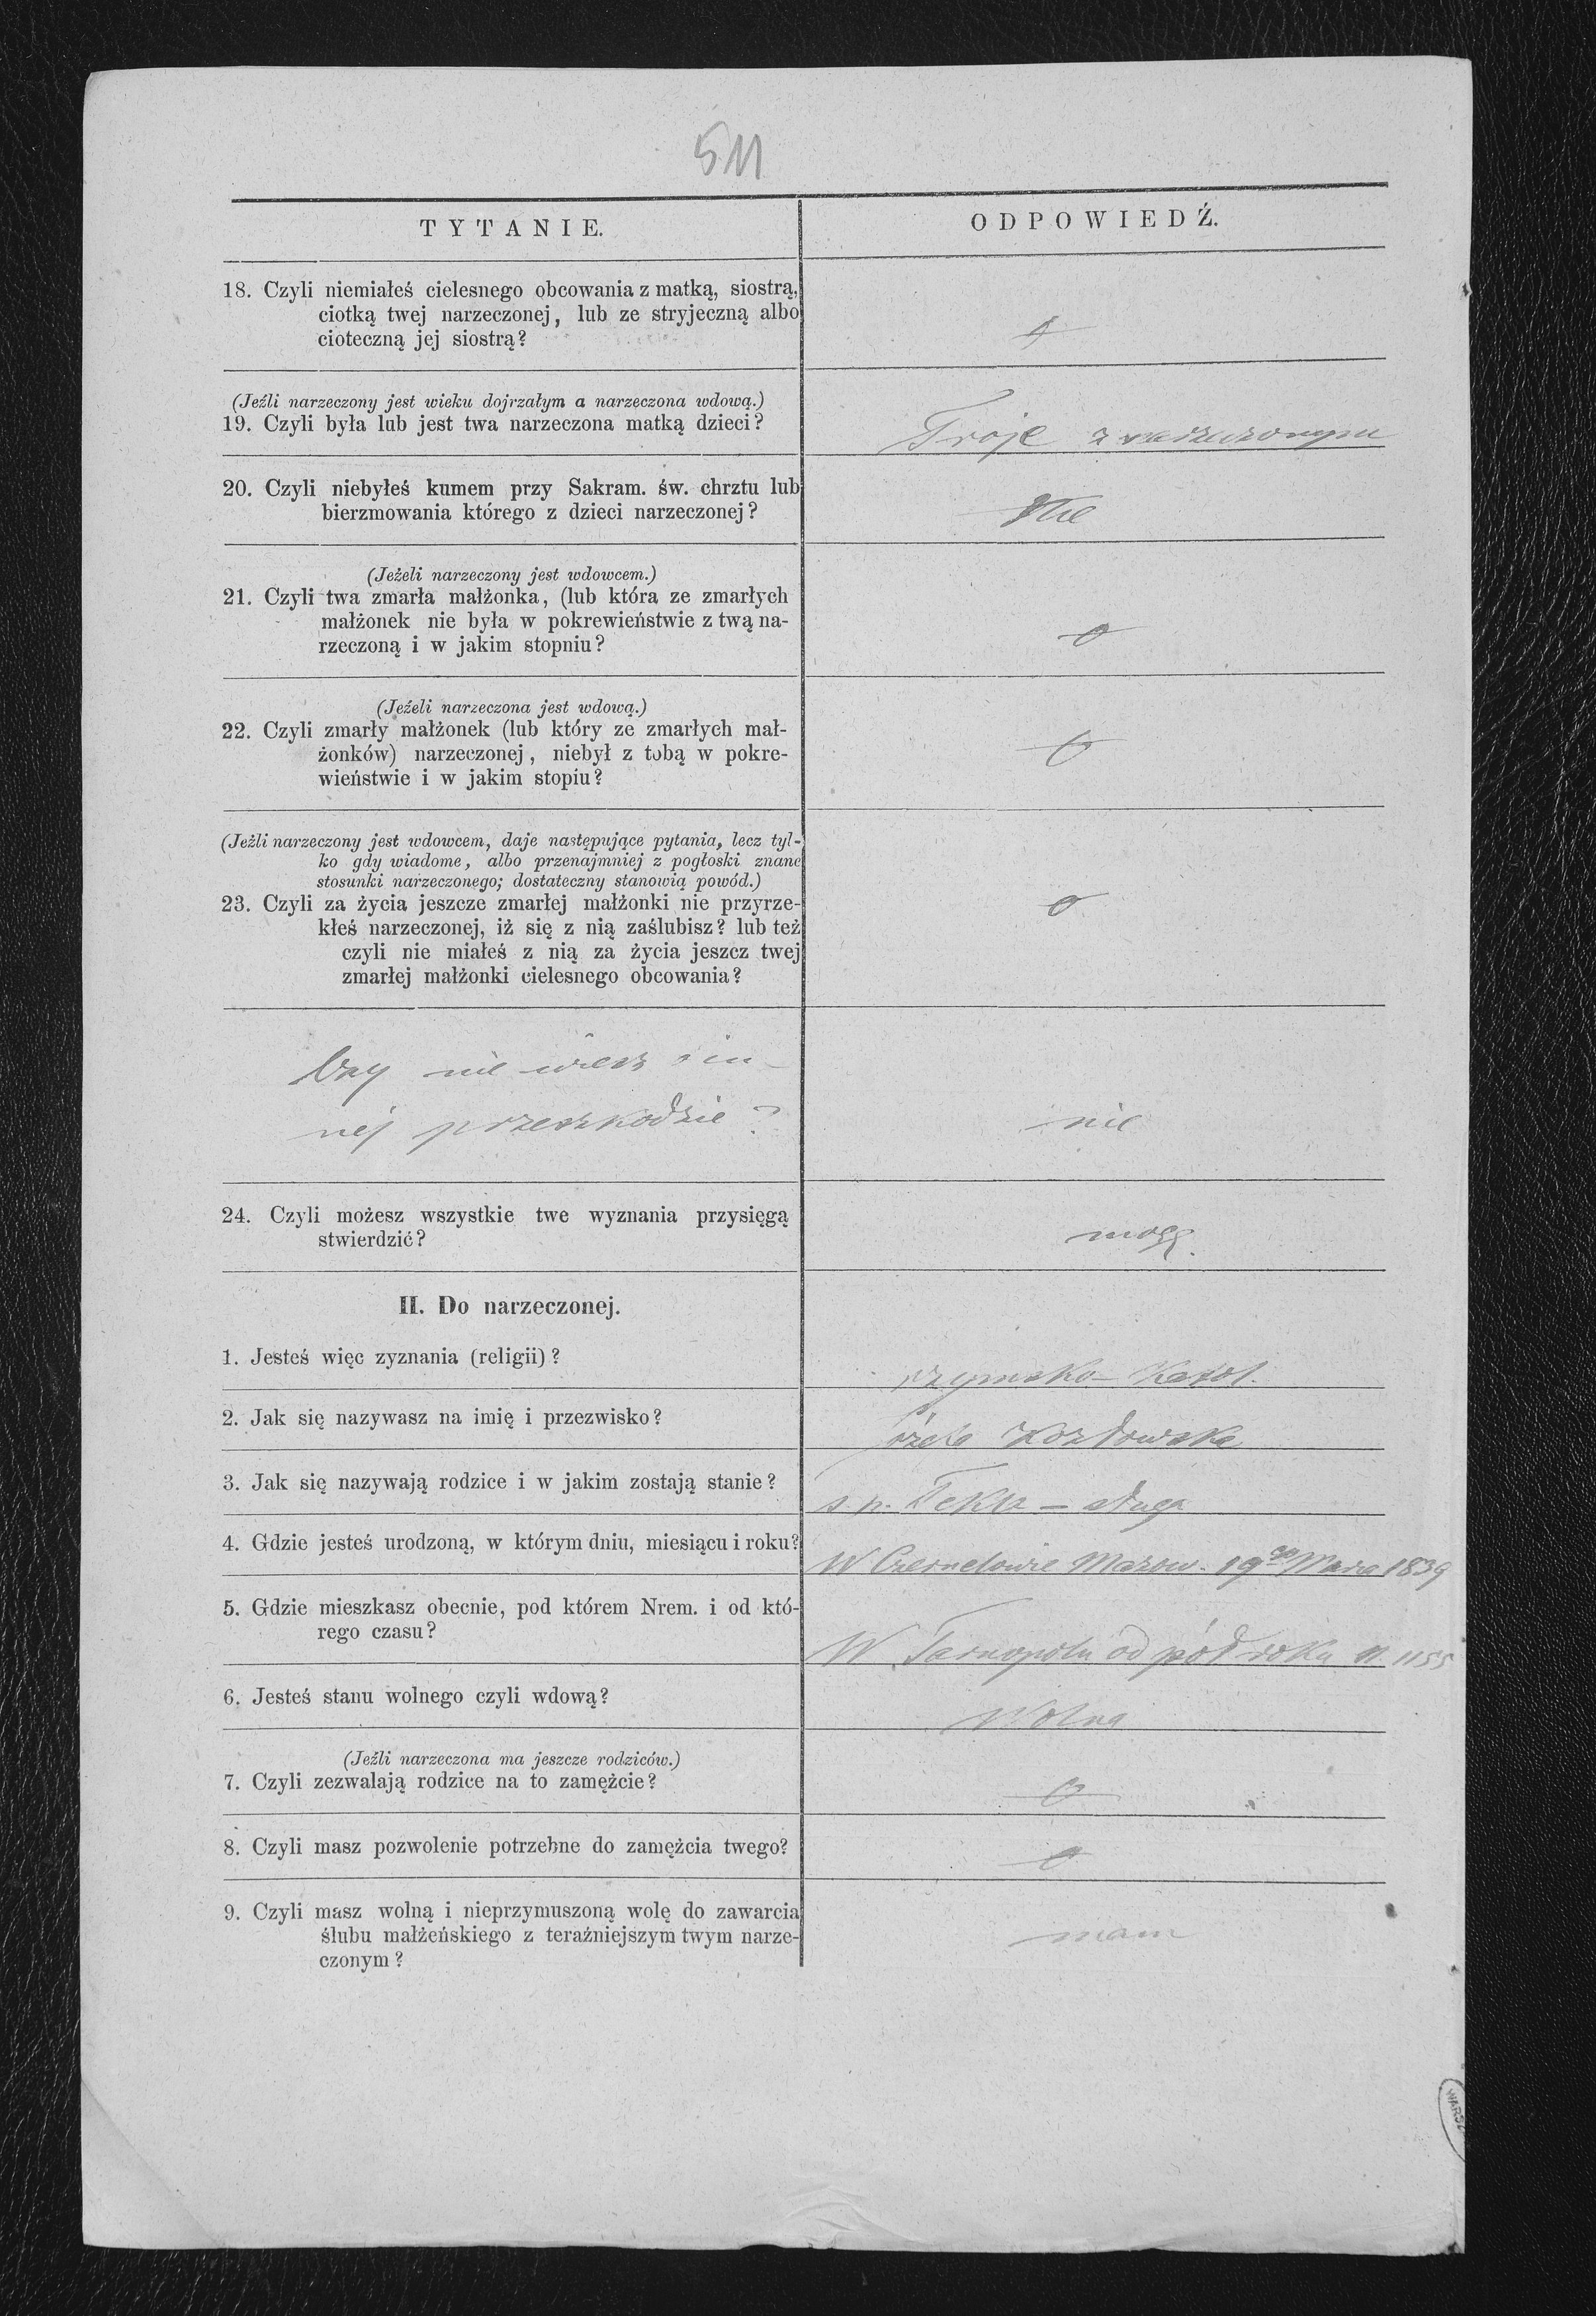 511
TYTANIE.
ODPOWIEDŹ.
18. Czyli niemiałeś cielesnego obcowania z matką, siostrą,
ciotką twej narzeczonej, lub ze stryjeczną albo
cioteczną jej siostrą?
(Jeźli narzeczony jest wieku dojrzałym a narzeczona wdową.)
19. Czyli była lub jest twa narzeczona matką dzieci?
Troje z narzeczonym
20. Czyli niebyłeś kumem przy Sakram. św. chrztu lub
bierzmowania którego z dzieci narzeczonej?
Nie
(Jeżeli narzeczony jest wdowcem.)
21. Czyli twa zmarła małżonka, (lub która ze zmarłych
małżonek nie była w pokrewieństwie z twą na-
rzeczoną i w jakim stopniu?
o
(Jeżeli narzeczona jest wdową.)
22. Czyli zmarły małżonek (lub który ze zmarłych mał-
żonków) narzeczonej, niebył z tobą w pokre-
wieństwie i w jakim stopiu?
o
(Jeżli narzeczony jest wdowcem, daje następujące pytania, lecz tyl-
ko gdy wiadome, albo przenajmniej z pogłoski znane
stosunki narzeczonego; dostateczny stanowią powód.)
23. Czyli za życia jeszcze zmarłej małżonki nie przyrze-
kłeś narzeczonej, iż się z nią zaślubisz? lub też
czyli nie miałeś z nią za życia jeszcz twej
zmarłej małżonki cielesnego obcowania?
o
Czy nie wiesz o in
nej przeszkodzie?
nie
24. Czyli możesz wszystkie twe wyznania przysięgą
stwierdzić?
mogę.
II. Do narzeczonej.
1. Jesteś więc zyznania (religii)?
rzymsko-Katol.
2. Jak się nazywasz na imię i przezwisko?
Józefa Kozłowska
3. Jak się nazywają rodzice i w jakim zostają stanie?
s. p. Tekla – sługa
4. Gdzie jesteś urodzoną, w którym dniu, miesiącu i roku?
W Czernelowie Mazow. 19go Marca 1839
5. Gdzie mieszkasz obecnie, pod którem Nrem. i od któ-
rego czasu?
W Tarnopolu od pół roku N. 1155
6. Jesteś stanu wolnego czyli wdową?
Wolna
(Jeźli narzeczona ma jeszcze rodziców.)
7. Czyli zezwalają rodzice na to zamężcie?
o
8. Czyli masz pozwolenie potrzebne do zamężcia twego?
o
9. Czyli masz wolną i nieprzymuszoną wolę do zawarcia
ślubu małżeńskiego z teraźniejszym twym narze-
czonym?
mam